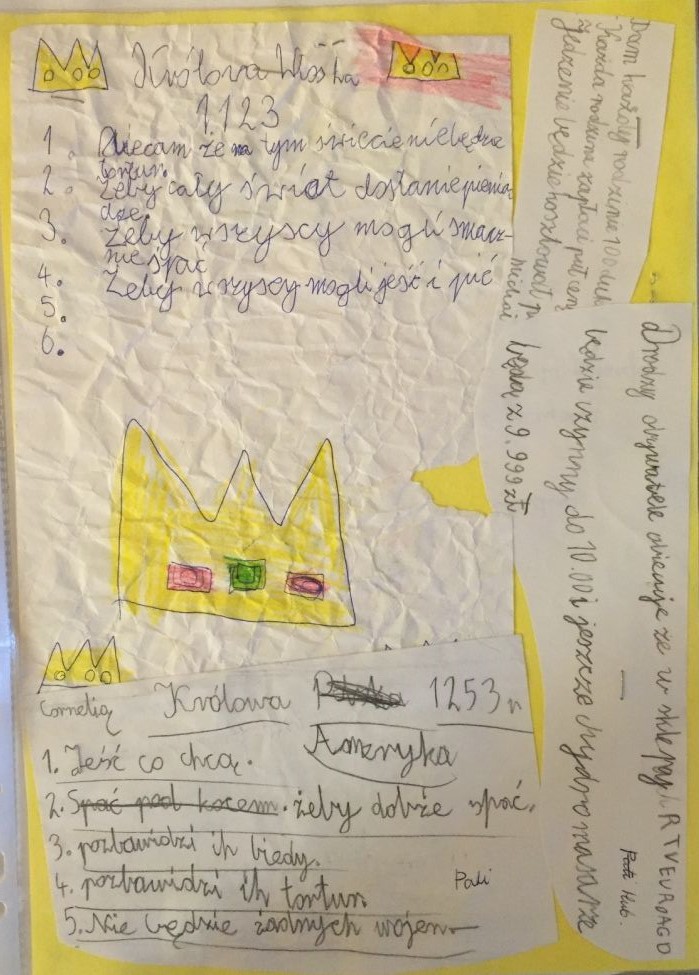 Królova Włoska
1123
1. Obiecam że na tym świecie nie będzie
tortur.
2. Żeby cały świat dostanie pienią
dze.
3. Żeby wszyscy mogli smacz-
nie spać
4. Żeby wszyscy mogli jeść i pić
5.
6.
Dam każdy rodzinie 100
Każda rodzina zapłaci pół ceny
Jedzenie będzie kosztował
będą z 9.999 zł
Drodzy obywatele obiecuje że w sklepach RTVEUROAGD
będzie czynny do 10.00 i jeszcze
Cornelia
Królowa 1253 r
Ameryka
1. Jeść co chcą.
2. Spać pod kocem. żeby dobże spać.
3. pozbawidzi ih biedy.
4. pozbawidzi ih tortur.
Pali
5. Nie będzie żadnych wojen